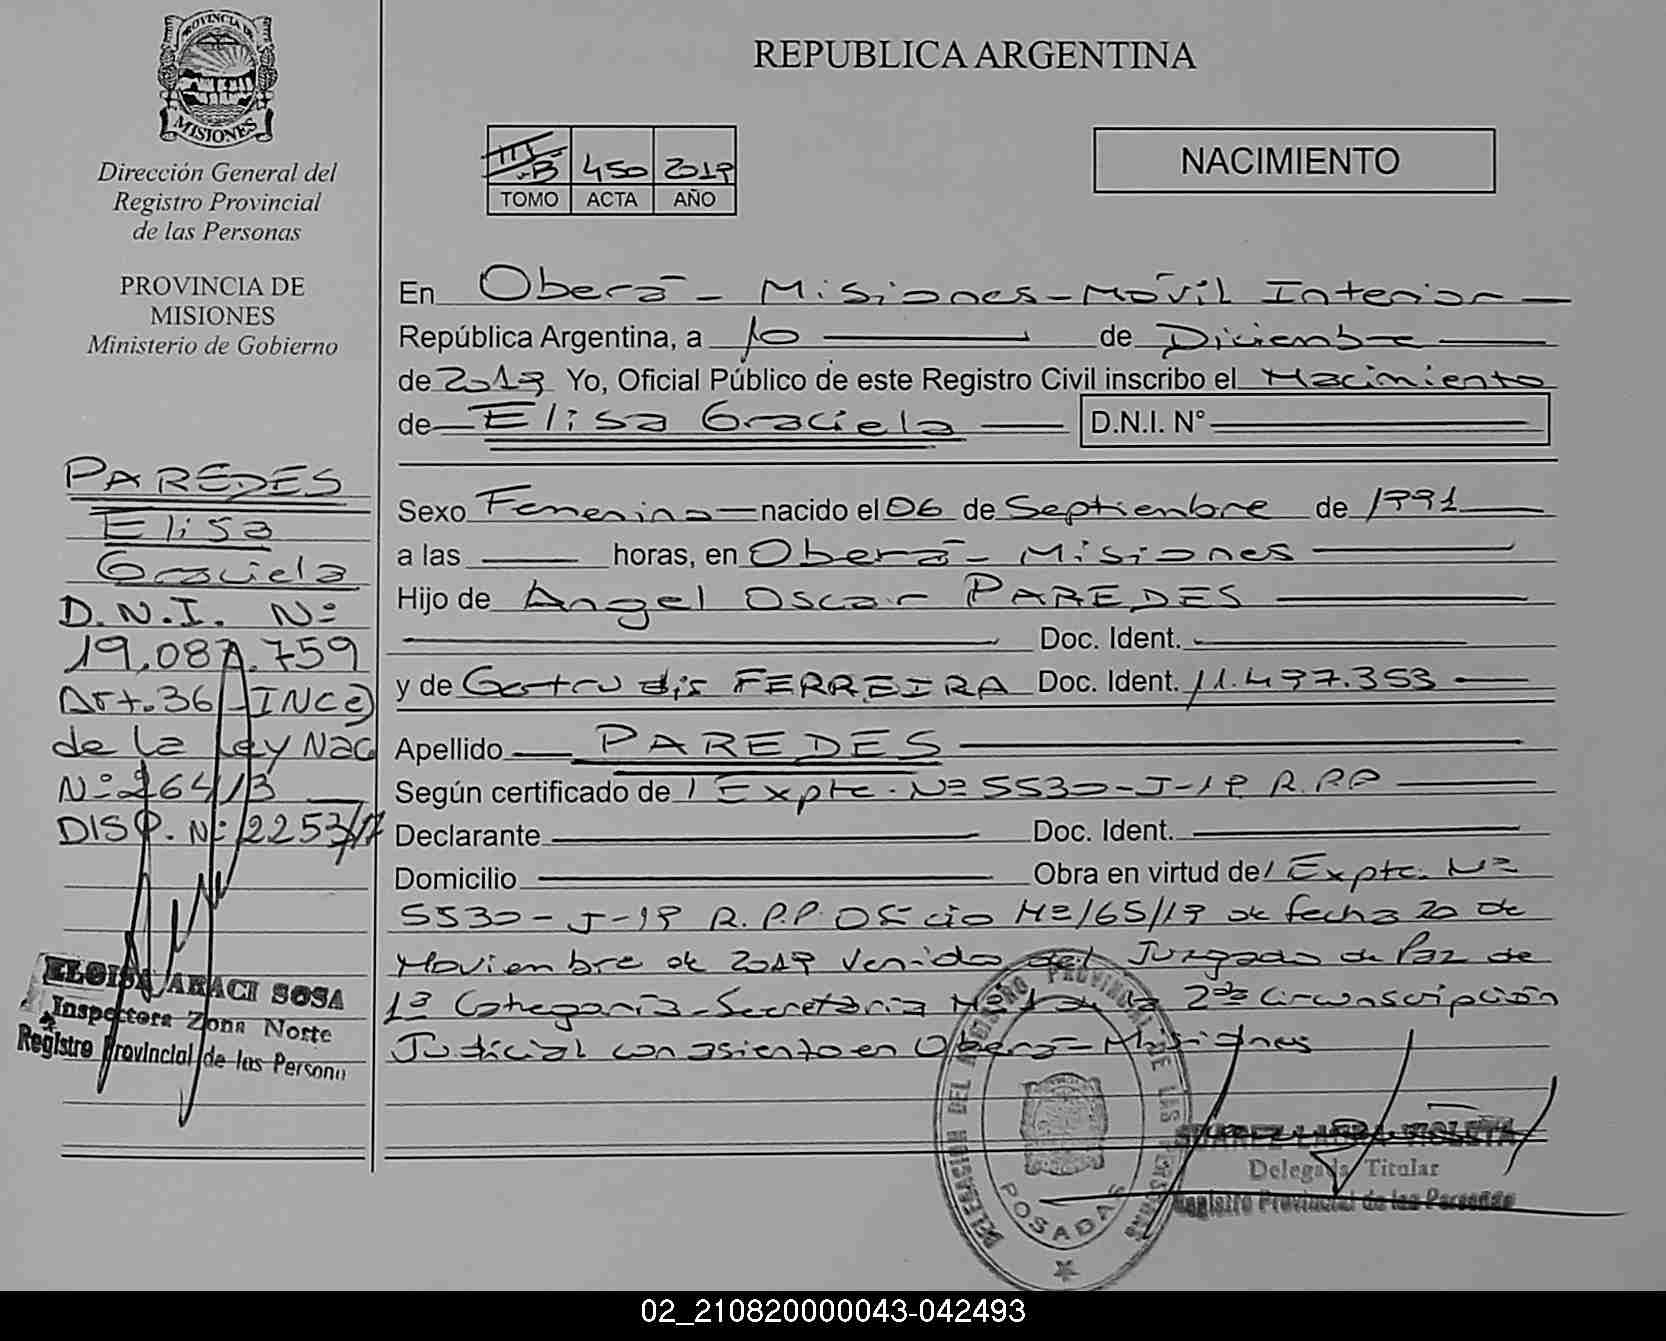 PROVINCIA DE
MISIONES
Dirección General del
Registro Provincial
de las Personas
PROVINCIA DE
MISIONES
Ministerio de Gobierno
PAREDES
Elisa
Graciela
D.N.I. Nº
19.087.759
Art. 36 INC e)
de la Ley Nac
Nº 26413
DISP. Nº 2253/17
ELOISA ARACI SOSA
Inspectora Zona Norte
Registro Provincial de las Persona
REPUBLICA ARGENTINA
III-B 450 2019
TOMO ACTA AÑO
NACIMIENTO
En Oberá - Misiones - Móvil Interior
República Argentina, a 10 de Diciembre
de 2019 Yo, Oficial Público de este Registro Civil inscribo el Nacimiento
de Elisa Graciela D.N.I. N°
Sexo Femenino nacido el 06 de Septiembre de 1991
a las horas, en Oberá - Misiones
Hijo de Angel Oscar PAREDES
Doc. Ident.
y de Gertrudis FERREIRA Doc. Ident. 11.497.353
Apellido PAREDES
Según certificado de / Expte. Nº 5530-J-19 R.P.P
Declarante Doc. Ident.
Domicilio Obra en virtud de / Expte. Nº
5530-J-19 R.P.P. Oficio Nº 165/19 de fecha 20 de
Noviembre de 2019 venido del Juzgado de Paz de
1ª Categoría - Secretaría Nº 1 de la 2da Circunscripción
Judicial con asiento en Oberá - Misiones
DELEGACION DEL REGISTRO PROVINCIAL DE LAS PERSONAS
POSADAS
SUAREZ LAURA VIOLETA
Delegada Titular
Registro Provincial de las Personas
02_210820000043-042493